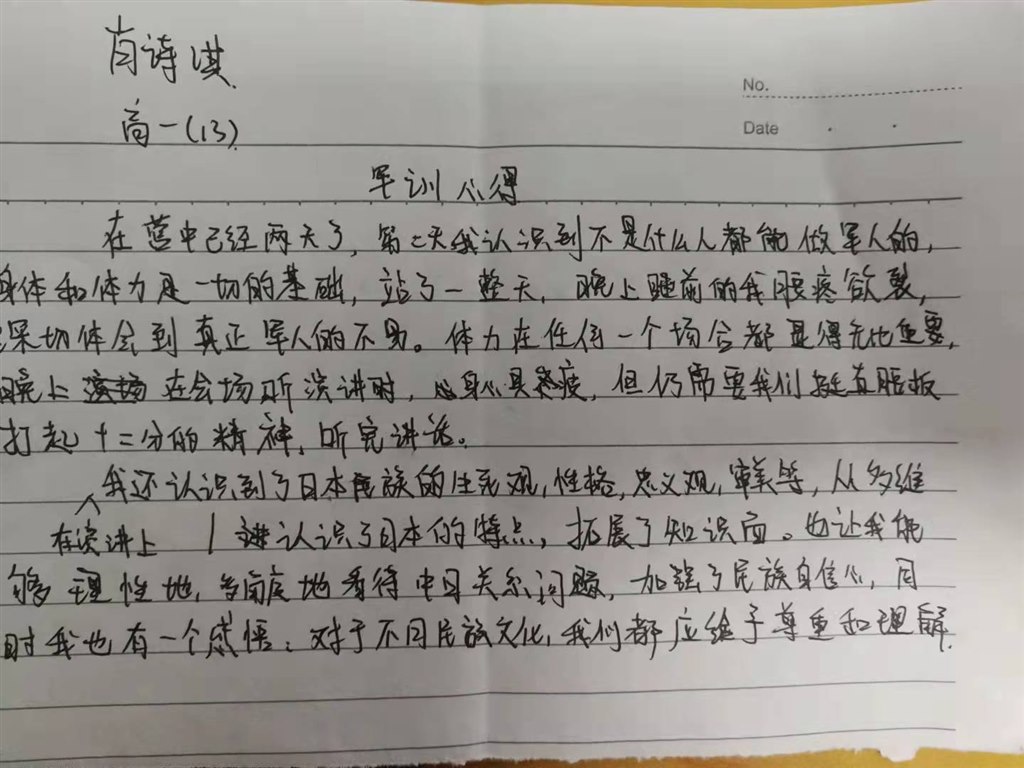 肖诗淇
高一(13)
No.
Date
军训心得
在营中已经两天了,第二天我认识到不是什么人都能做军人的,
身体和体力是一切的基础,站了一整天,晚上睡前的我腰疼欲裂,
深切体会到真正军人的不易。体力在任何一个场合都显得无比重要,
晚上在会场听演讲时,身心具疲,但仍需要我们挺直腰板
打起十二分的精神,听完讲话。
我还认识到了日本民族的生死观,性格,忠义观,审美等,从多维
在演讲上
认识了日本的特点,拓展了知识面。也让我能
够理性地,多角度地看待中日关系问题,加强了民族自信心,同
时我也有一个感悟:对于不同民族文化,我们都应给予尊重和理解.